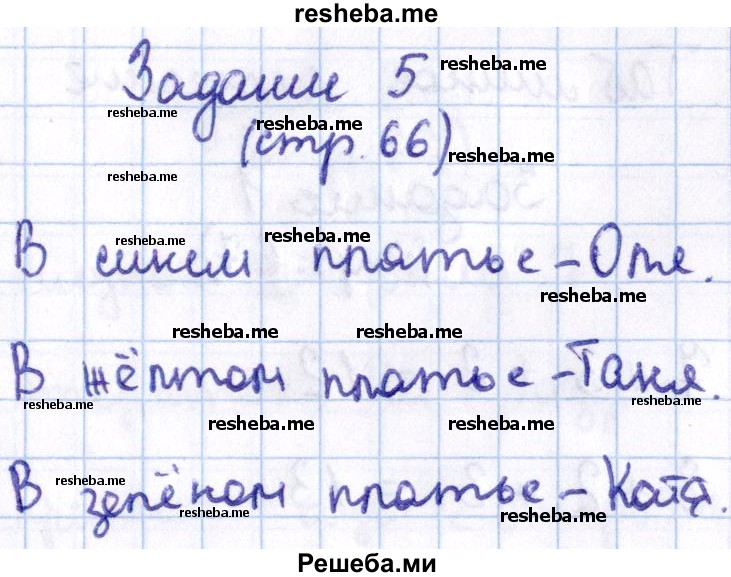 resheba.me
Задание 5 resheba.me
resheba.me
(стр. 66) resheba.me
resheba.me
resheba.me
В синем платье - Оля.
resheba.me resheba.me
resheba.me
resheba.me resheba.me
В жёлтом платье - Таня.
resheba.me resheba.me
resheba.me resheba.me
В зелёном платье - Катя.
resheba.me resheba.me resheba.me
Решеба.ми